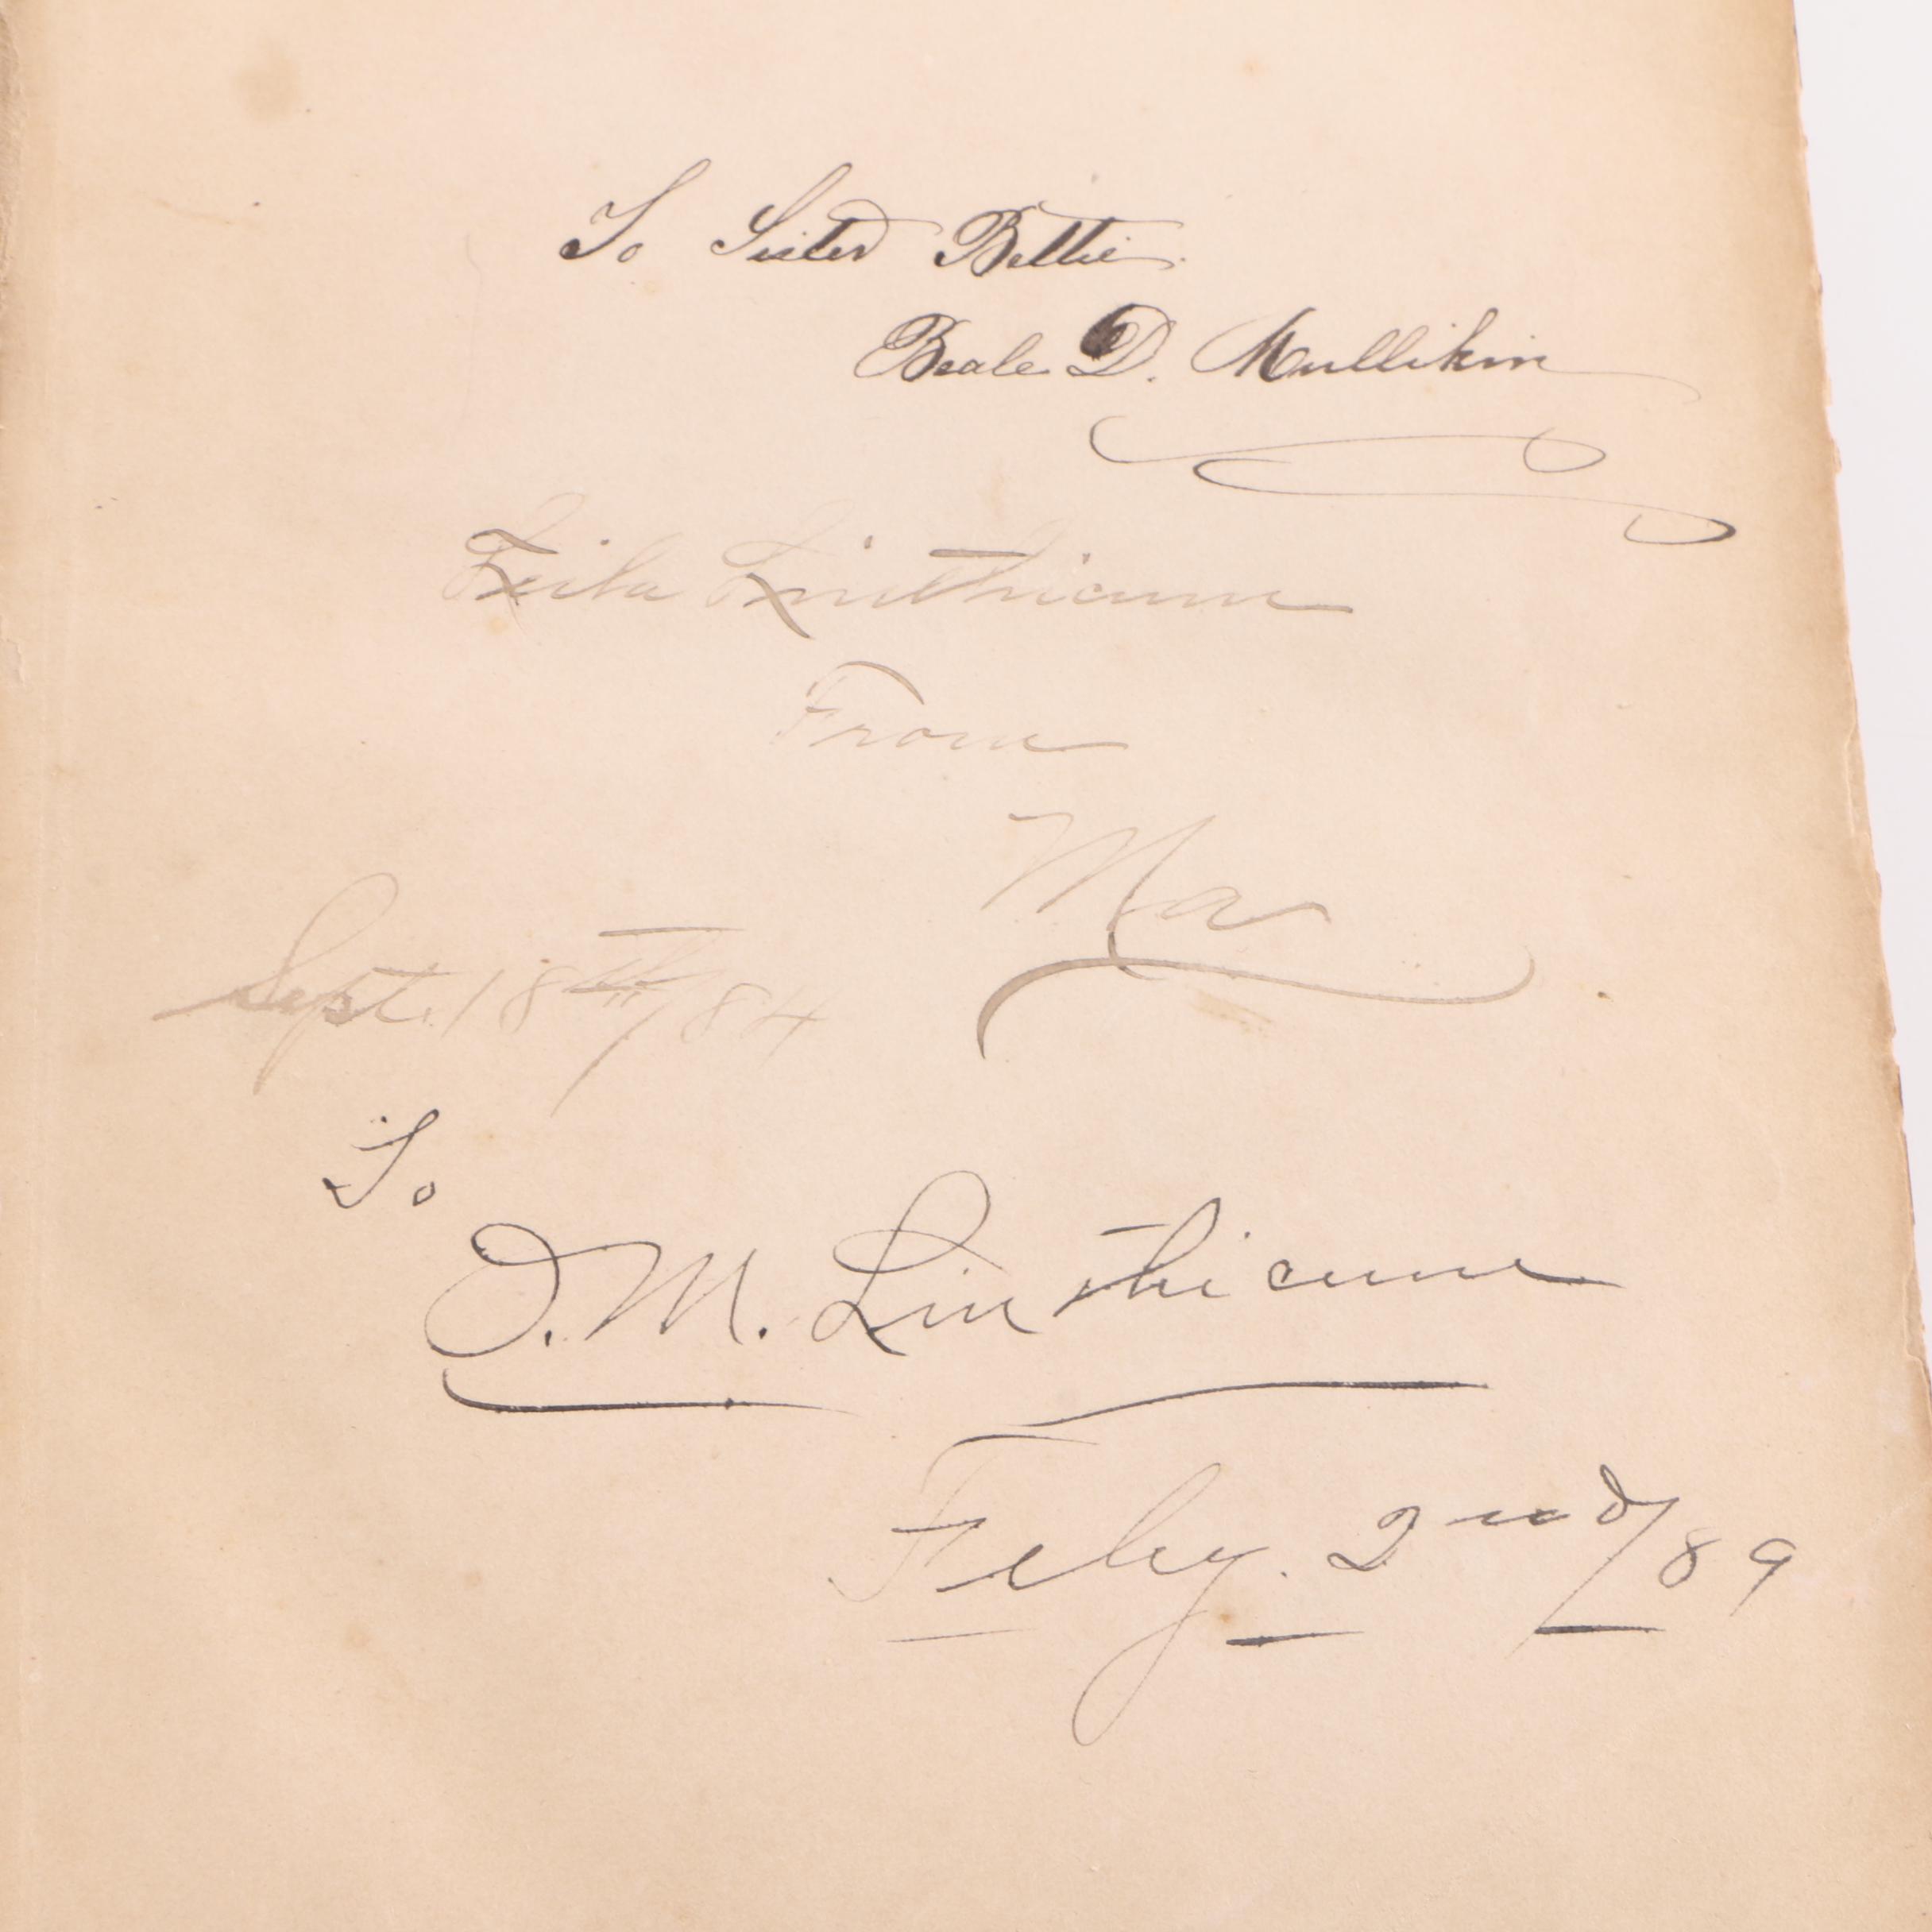 To Sister Bettie.
Beale D. Mullikin
Leila Linthicum
From
Ma
Sept. 18th/84
To
O. M. Linthicum
Feby. 2nd/89